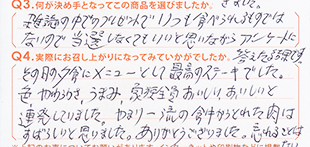 Q3.何が決め手となってこの商品を選びましたか
きました。
雑誌の中でのプレゼントでいつも食べられるものでは
ないので当選しなくてもいいと思いながらアンケートに
Q4.実際にお召し上がりになってみていかがでしたか。
答えた結果です
その日の夕食にメニューとして最高のステーキでした。
色 やわらかさ、うまみ、家族全員おいしい、おいしいと
連発していました。やはり一流の食中からとれた肉は
すばらしいと思いました。ありがとうございました。忘れることは